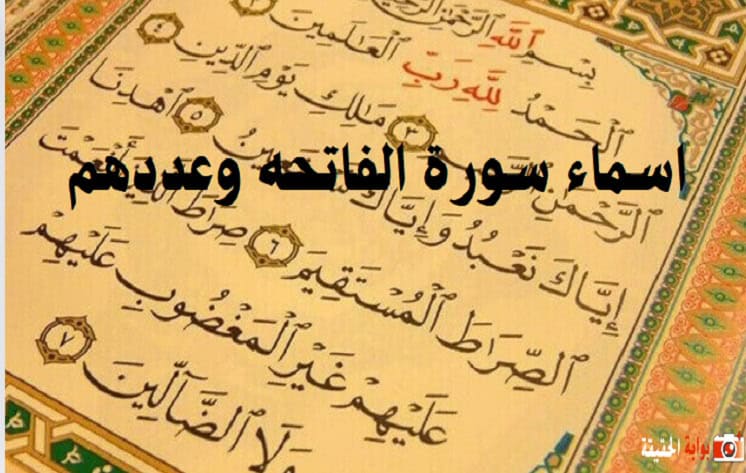 بِسْمِ ٱللَّهِ ٱلرَّحْمَٰنِ ٱلرَّحِيمِ
ٱلْحَمْدُ لِلَّهِ رَبِّ ٱلْعَٰلَمِينَ ٢
ٱلرَّحْمَٰنِ ٣ مَٰلِكِ يَوْمِ ٱلدِّينِ ٤
اسماء سورة الفاتحه وعددهم
إِيَّاكَ نَعْبُدُ وَإِيَّاكَ ٥ ٱهْدِنَا
ٱلصِّرَٰطَ ٱلْمُسْتَقِيمَ ٦ صِرَٰطَ ٱلَّذِينَ أَنْعَمْتَ
عَلَيْهِمْ غَيْرِ ٱلْمَغْضُوبِ عَلَيْهِمْ
وَلَا ٱلضَّآلِّينَ ٧
بوابة الحقيقة